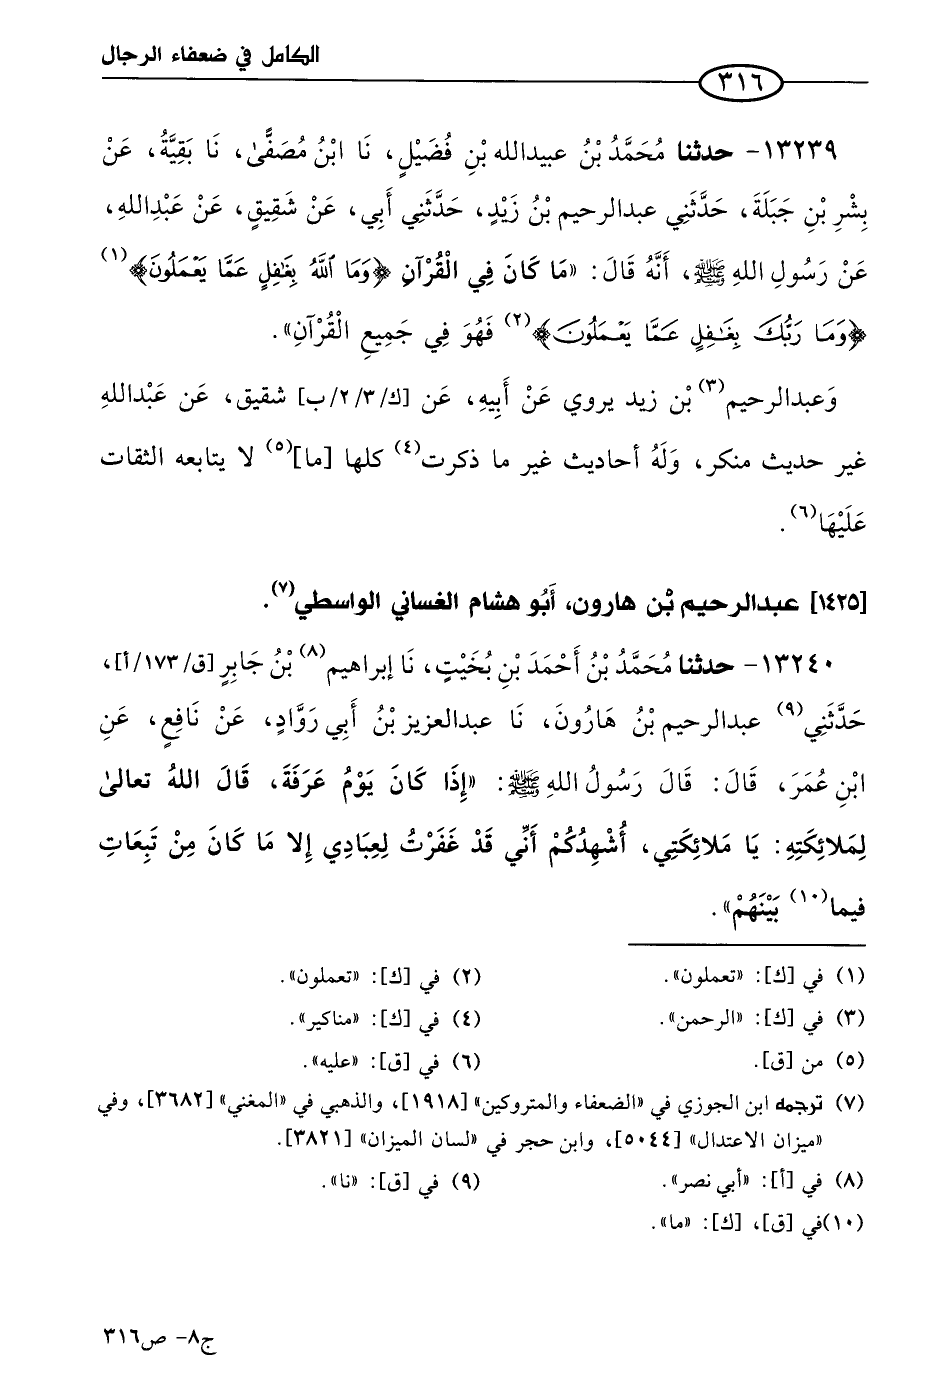 الكامل في ضعفاء الرجال
٣١٦
١٣٢٣٩- حدثنا مُحَمَّدُ بْنُ عبيدالله بْنِ فُضَيْلٍ، نَا ابْنُ مُصَفًّىٰ، نَا بَقِيَّةُ، عَنْ
بِشْرِ بْنِ جَبَلَةَ، حَدَّثَنِي عبدالرحيم بْنُ زَيْدٍ، حَدَّثَنِي أَبِي، عَنْ شَقِيقٍ، عَنْ عَبْدِاللهِ،
عَنْ رَسُولِ اللهِ ﷺ، أَنَّهُ قَالَ: «مَا كَانَ فِي الْقُرْآنِ ﴿وَمَا ٱللَّهُ بِغَٰفِلٍ عَمَّا يَعْمَلُونَ﴾(١)
﴿وَمَا رَبُّكَ بِغَٰفِلٍ عَمَّا يَعْمَلُونَ﴾(٢) فَهُوَ فِي جَمِيعِ الْقُرْآنِ».
وَعبدالرحيم(٣) بْن زيد يروي عَنْ أَبِيهِ، عَن [ك/٢/٣/ب] شقيق، عَن عَبْدالله
غير حديث منكر، وَلَهُ أحاديث غير ما ذكرت(٤) كلها [ما](٥) لا يتابعه الثقات
عَلَيْهَا(٦).
[١٤٢٥] عبدالرحيم بْن هارون، أَبُو هشام الغساني الواسطي(٧).
١٣٢٤٠- حدثنا مُحَمَّدُ بْنُ أَحْمَدَ بْنِ بُخَيْتٍ، نَا إبراهيم(٨) بْنُ جَابِرٍ [ق/١٧٣/أ]،
حَدَّثَنِي(٩) عبدالرحيم بْنُ هَارُونَ، نَا عبدالعزيز بْنُ أَبِي رَوَّادٍ، عَنْ نَافِعٍ، عَنِ
ابْنِ عُمَرَ، قَالَ: قَالَ رَسُولُ اللهِ ﷺ: «إِذَا كَانَ يَوْمُ عَرَفَةَ، قَالَ اللهُ تعالىٰ
لِمَلائِكَتِهِ: يَا مَلائِكَتِي، أُشْهِدُكُمْ أَنِّي قَدْ غَفَرْتُ لِعِبَادِي إِلا مَا كَانَ مِنْ تَبِعَاتِ
فيما(١٠) بَيْنَهُمْ».
(١) في [ك]: «تعملون». (٢) في [ك]: «تعملون».
(٣) في [ك]: «الرحمن». (٤) في [ك]: «مناكير».
(٥) من [ق]. (٦) في [ق]: «عليه».
(٧) ترجمه ابن الجوزي في «الضعفاء والمتروكين» [١٩١٨]، والذهبي في «المغني» [٣٦٨٢]، وفي
«ميزان الاعتدال» [٥٠٤٤]، وابن حجر في «لسان الميزان» [٣٨٢١].
(٨) في [أ]: «أبي نصر». (٩) في [ق]: «نا».
(١٠)في [ق]، [ك]: «ما».
ج٨- ص٣١٦